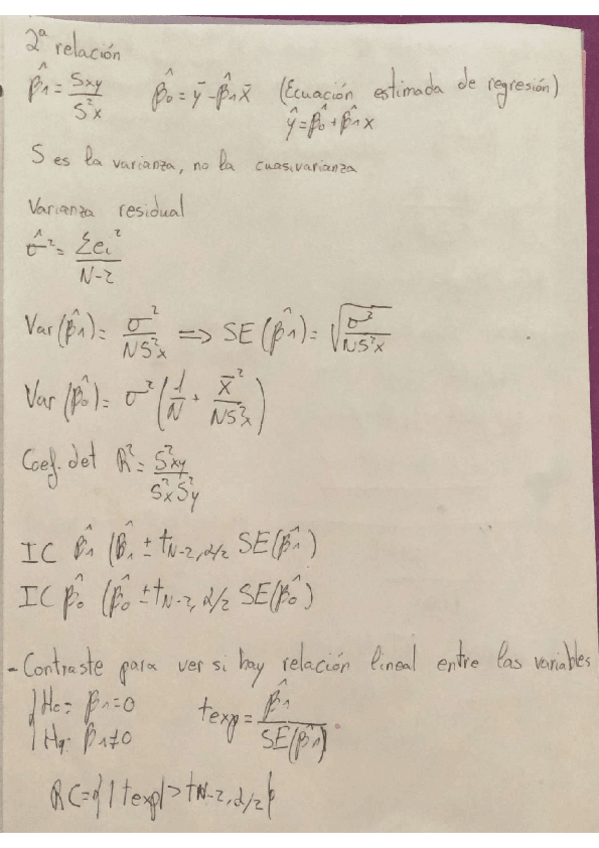 2ª relación
β̂1 = Sxy / S²x   β̂0 = ȳ - β̂1 x̄   (Ecuación estimada de regresión)
ŷ = β̂0 + β̂1 x
S es la varianza, no la cuasivarianza
Varianza residual
σ̂² = Σei² / N-2
Var(β̂1) = σ² / NS²x => SE(β̂1) = √(σ² / NS²x)
Var(β̂0) = σ² (1/N + x̄² / NS²x)
Coef. det R² = S²xy / S²x S²y
IC β̂1 (β̂1 ± tN-2, α/2 SE(β̂1)
IC β̂0 (β̂0 ± tN-2, α/2 SE(β̂0)
- Contraste para ver si hay relación lineal entre las variables
{ H0 = β1 = 0   texp = β̂1 / SE(β̂1)
H1: β1 ≠ 0
RC = {|texp| > tN-2, α/2}